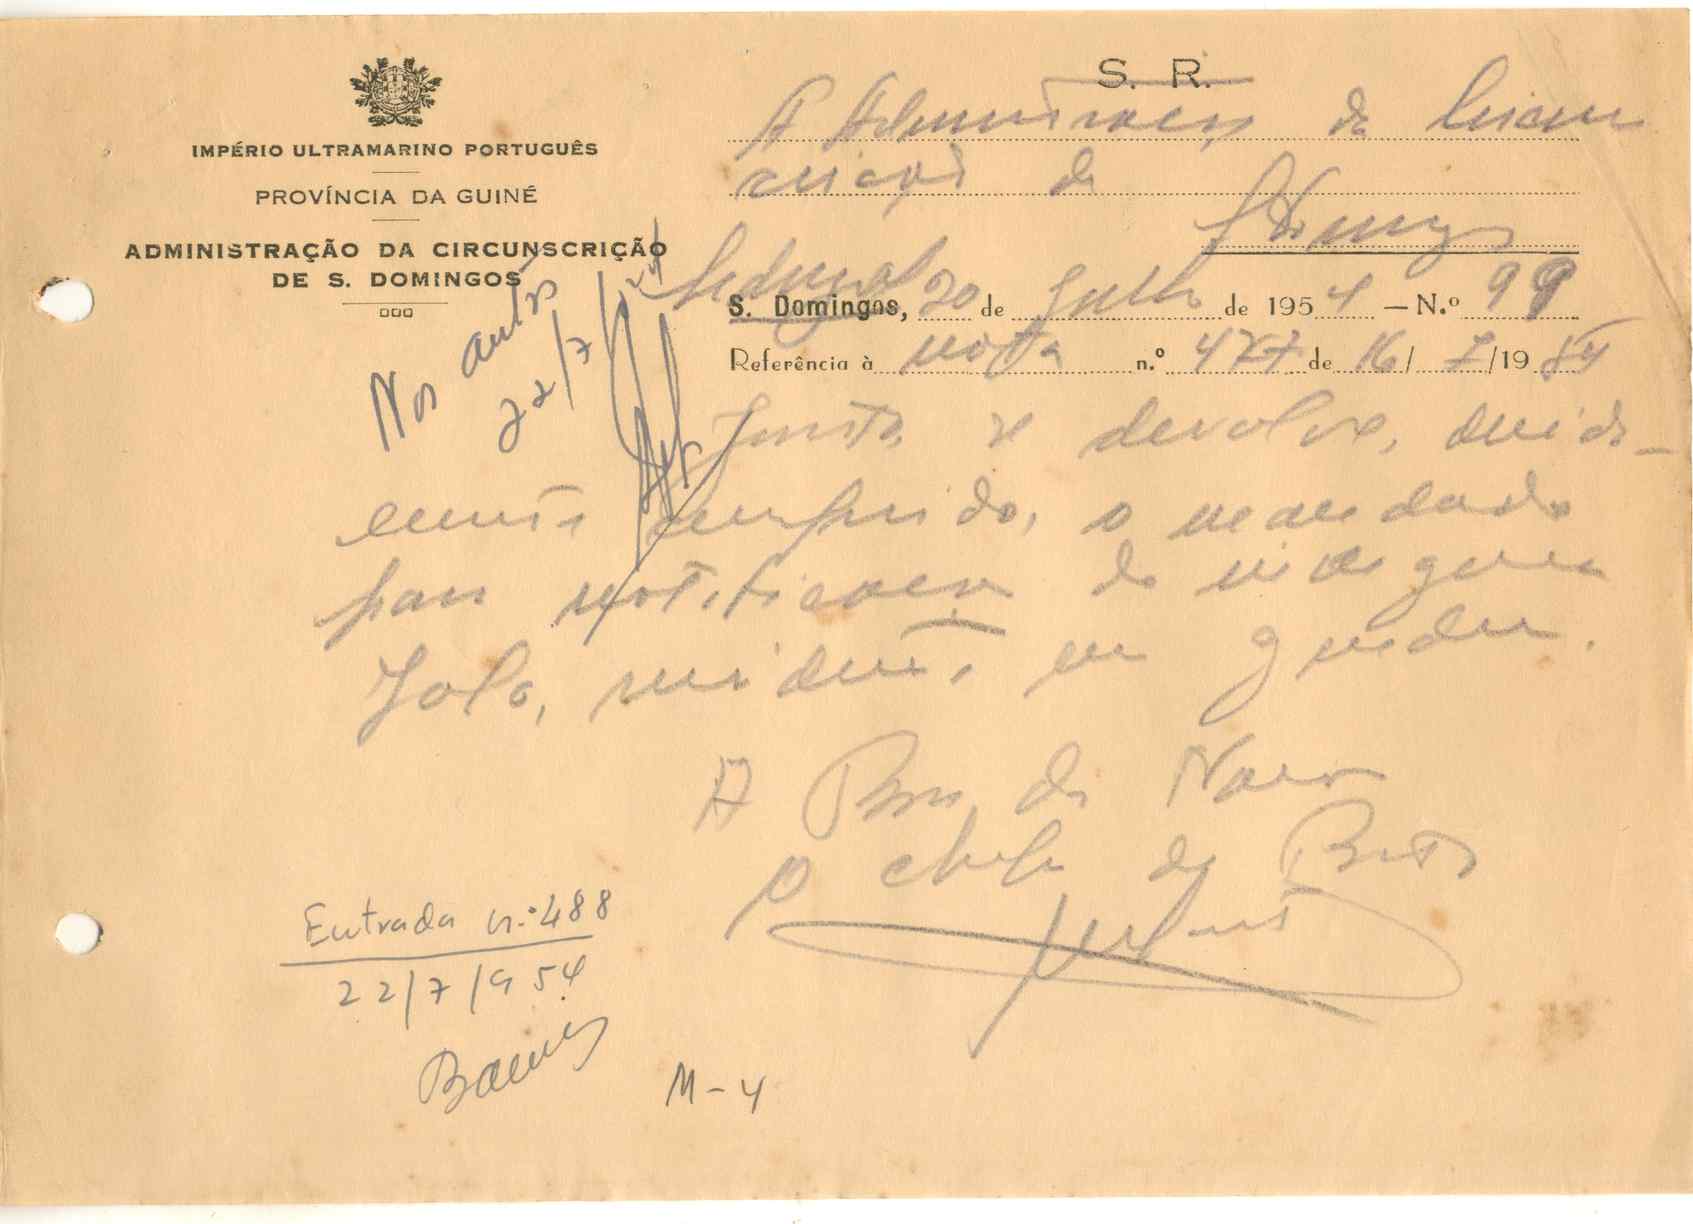 IMPÉRIO ULTRAMARINO PORTUGUÊS
PROVÍNCIA DA GUINÉ
ADMINISTRAÇÃO DA CIRCUNSCRIÇÃO
DE S. DOMINGOS
S. R.
A Administração da Circuns
crição de
S. Domingos
S. Domingos, 20 de Julho de 1954 — N.º 99
Referência à nota n.º 477 de 16/7/1954
Nos autos
22/7/54
Junto se devolve, devida-
mente cumprido, o mandado
para notificação do indígena
Jolo, residente em
A Bem da Nação
O chefe de Posto
Entrada n.º 488
22/7/954
M-4